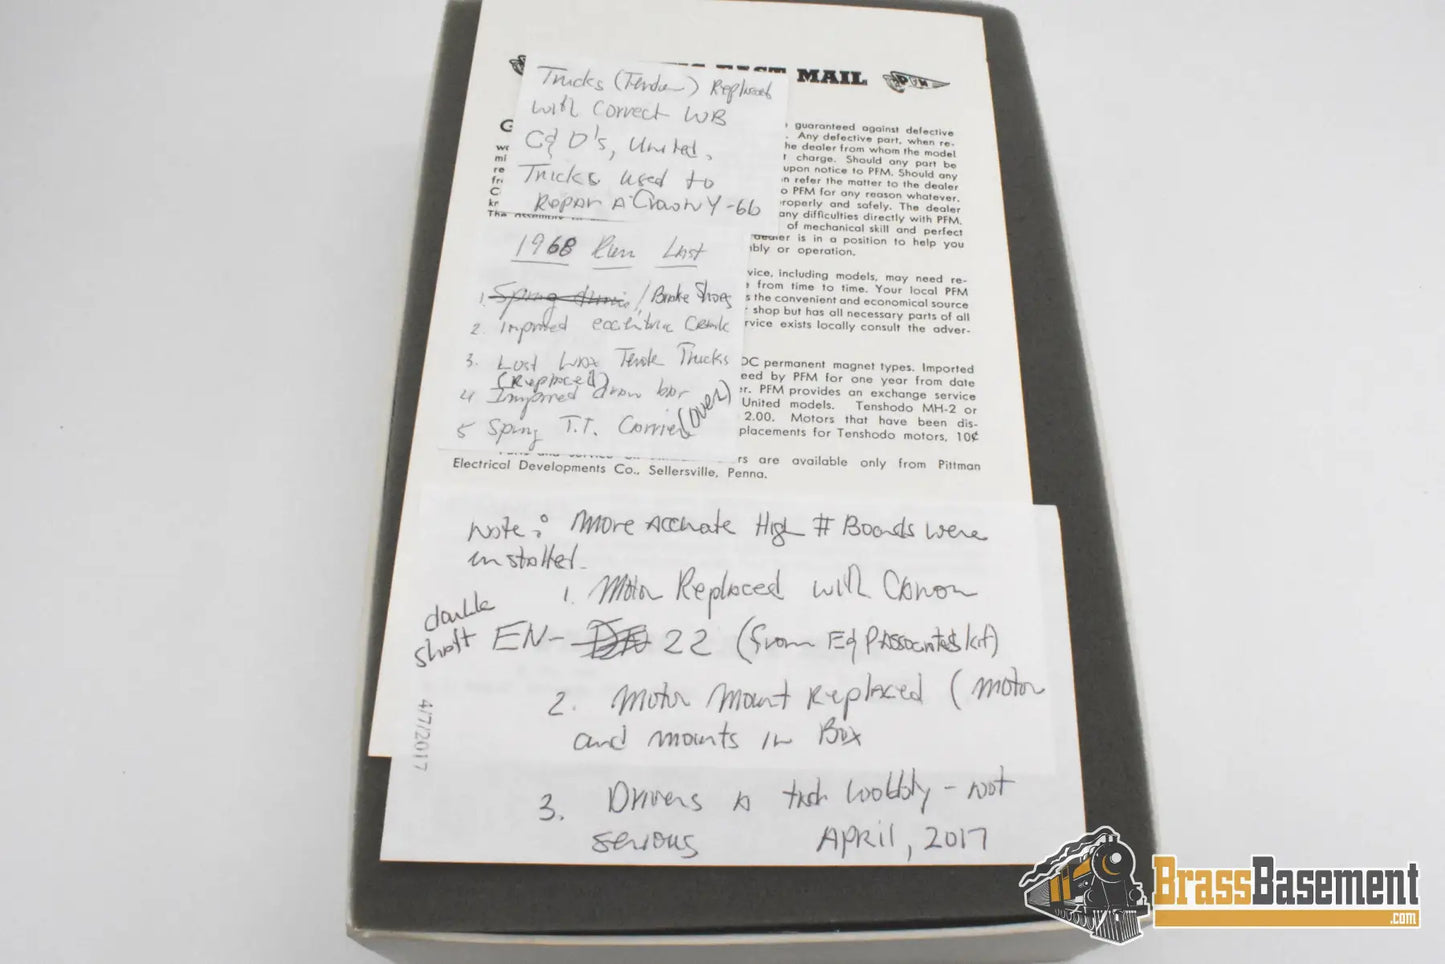 FAST MAIL
PFM
Trucks (Tender) Replaced
with Correct WB
C&O's, United.
Trucks used to
Repair A Crown Y-6b
guaranteed against defective
. Any defective part, when re-
he dealer from whom the model
t charge. Should any part be
upon notice to PFM. Should any
n refer the matter to the dealer
o PFM for any reason whatever.
roperly and safely. The dealer
any difficulties directly with PFM.
of mechanical skill and perfect
dealer is in a position to help you
bly or operation.
1968 Run List
1. Spring / Brake Shoes
2. Improved eccentric Crank
3. Lost Wax Tender Trucks
(Replaced)
4 Improved draw bar
5 Spring T.T. Carrier (over)
vice, including models, may need re-
from time to time. Your local PFM
s the convenient and economical source
r shop but has all necessary parts of all
rvice exists locally consult the adver-
DC permanent magnet types. Imported
eed by PFM for one year from date
er. PFM provides an exchange service
United models. Tenshodo MH-2 or
2.00. Motors that have been dis-
placements for Tenshodo motors, 10¢
rs are available only from Pittman
Electrical Developments Co., Sellersville, Penna.
Note: More Accurate High # Boards were
installed.
1. Motor Replaced with Canon
double
shaft EN- 22 (from E&P Associates kit)
2. Motor Mount Replaced (Motor
and mounts in Box
3. Drivers a tish wobbly - not
serious April, 2017
4/7/2017
BrassBasement
.com